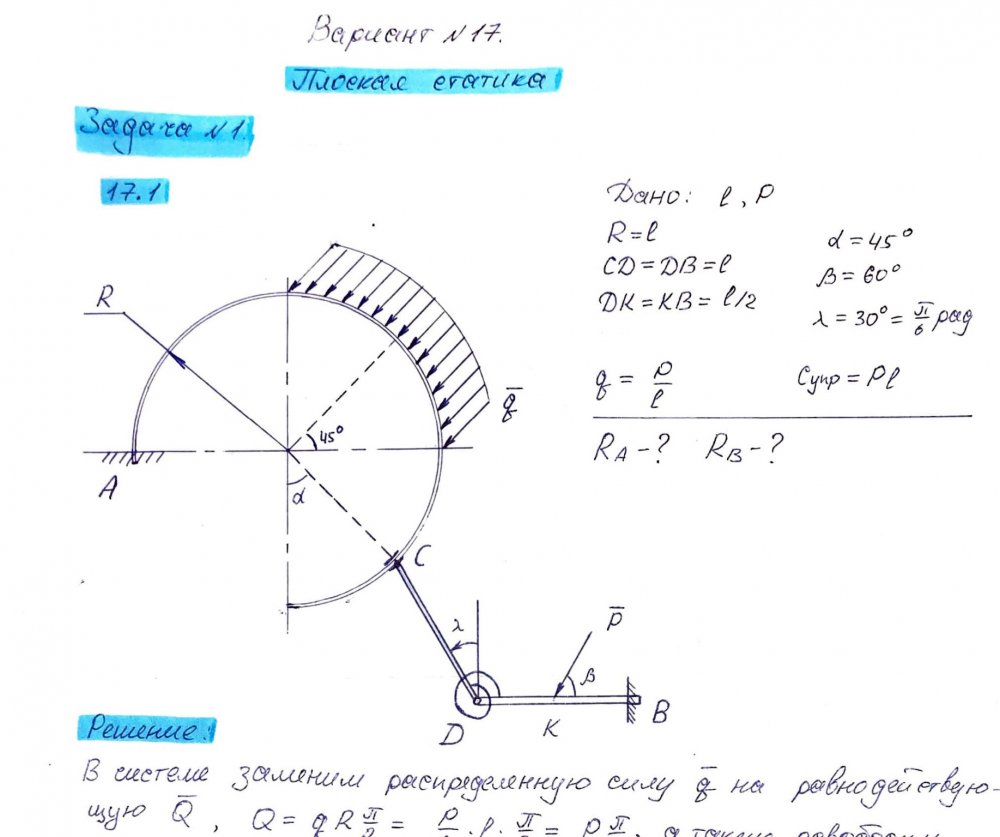 Вариант №17.
Плоская статика
Задача №1.
17.1
Дано: l, P
R=l
α=45°
CD=DB=l
β=60°
DK=KB=l/2
λ=30°=π/6 рад
q = P/l
Cупр=Pl
RA-? RB-?
R
q̅
45°
A
α
C
λ
P̅
β
D
K
B
Решение:
В системе заменим распределенную силу q̅ на равнодействую-
щую Q̅, Q = qR